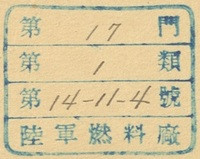 第 17 門
第 1 類
第 14-11-4 號
陸軍燃料廠